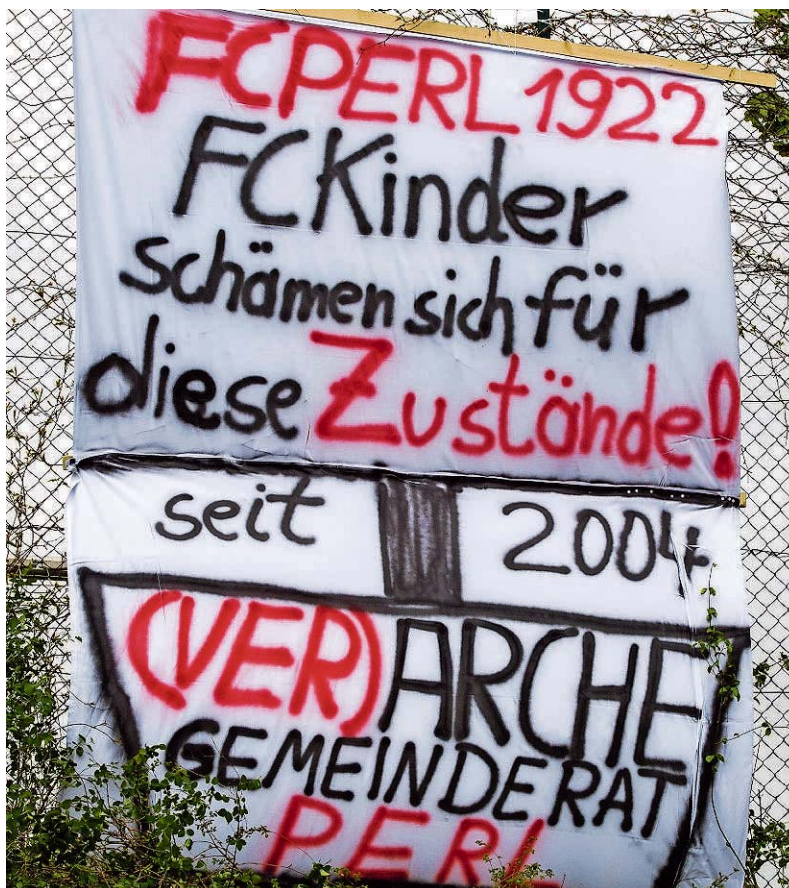 FCPERL 1922
FCKinder
schämen sich für
diese Zustände!
seit 2004
(VER)ARCHE
GEMEINDERAT
PERL